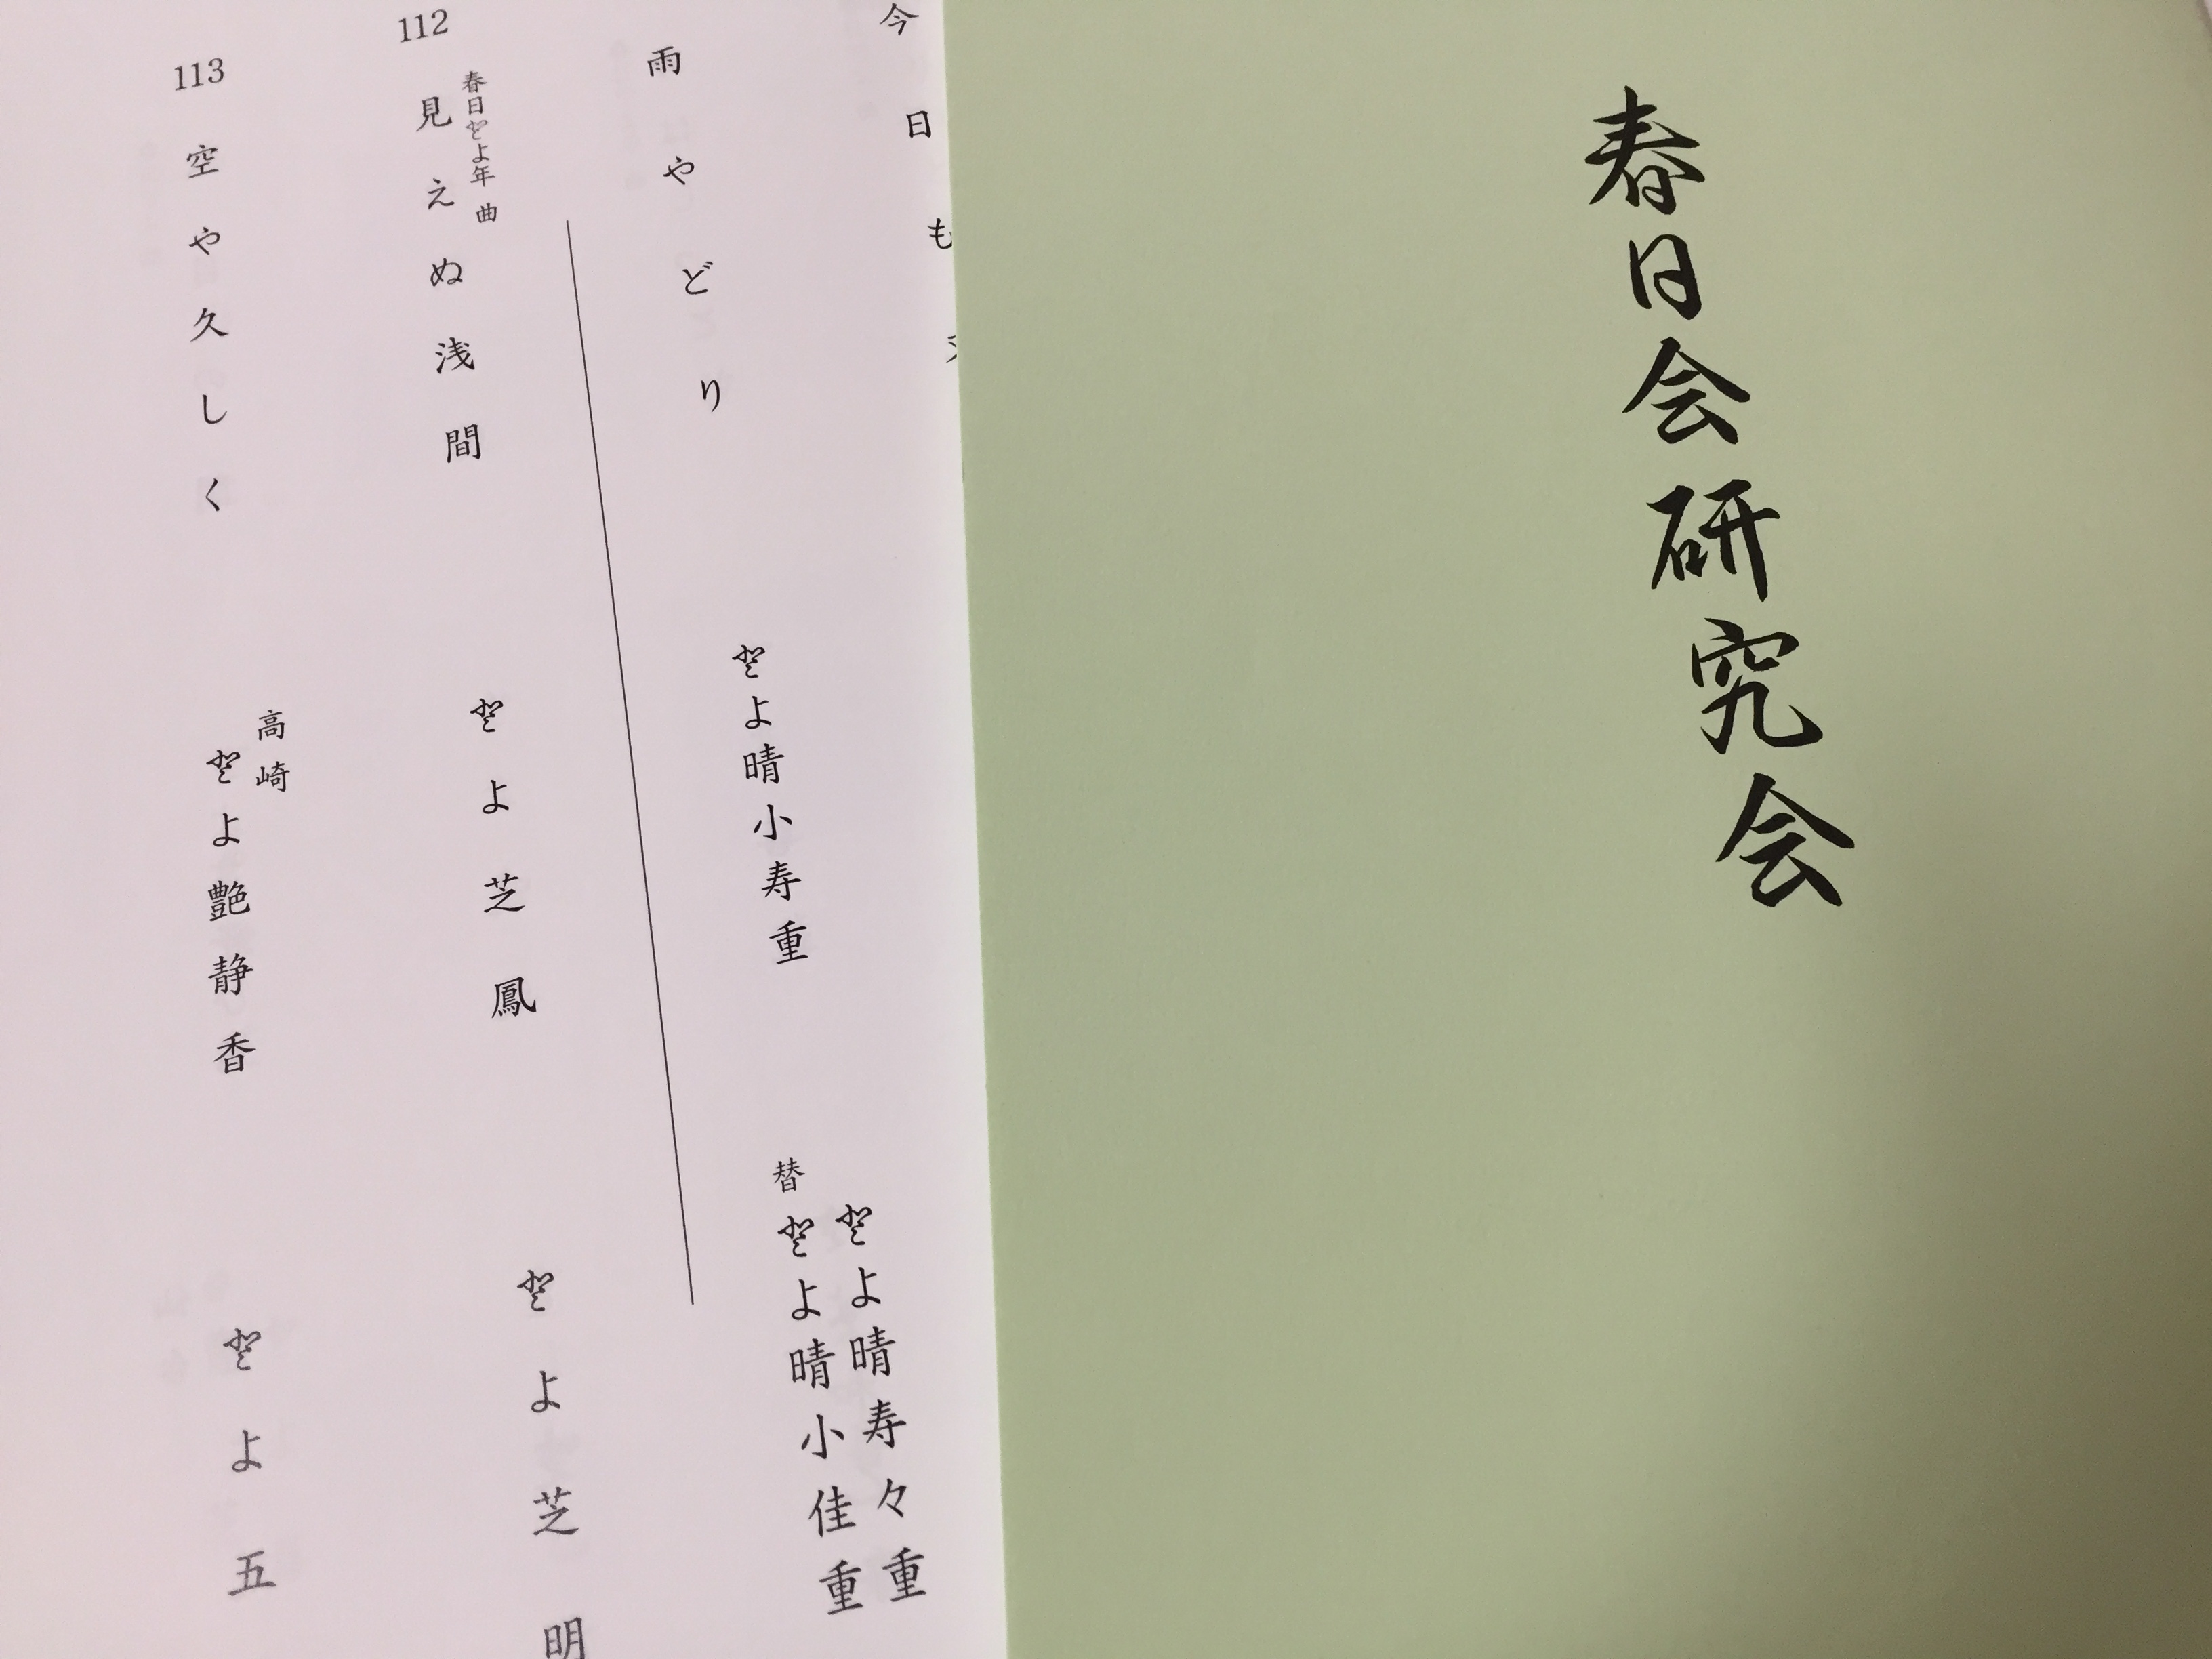 春日会研究会
今日も
雨やどり
とよ晴小寿重
とよ晴寿々重
替 とよ晴小佳重
112
春日とよ年 曲
見えぬ浅間
とよ芝鳳
とよ芝明
113
空や久しく
高崎
とよ艶静香
とよ五